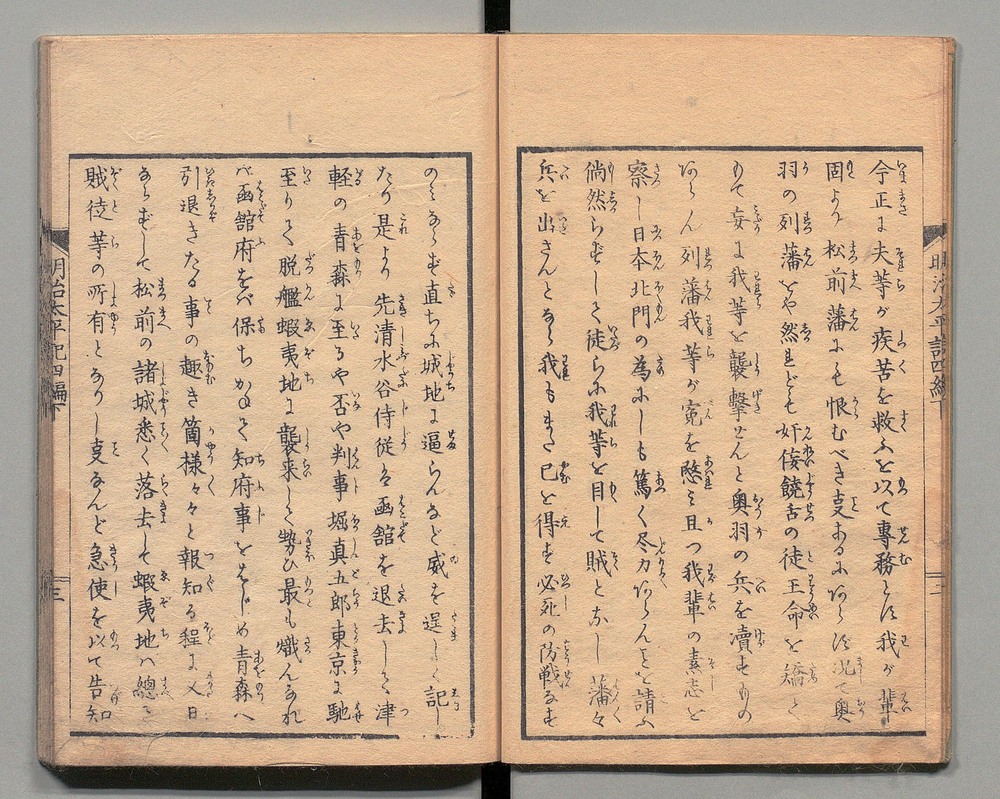 今正に夫等が疾苦を救ふを以て專務とは我が輩
固より松前藩にも恨むべき事あるにあらず况て奥
羽の列藩をや然どとも奸佞饒舌の徒王命を矯て
もて妄に我等を襲撃せんと奥羽の兵を瀆すもの
ならん列藩我等が寃を愍み且つ我輩の素志を
察し日本北門の為にしも篤く尽力あらんを請ふ
倘然らずして徒らに我等を目して賊となし藩々
兵を出さんとなら我もまた已を得ず必死の防戦なす
のみならず直ちに城地に逼らんなど威を逞しく記し
たり是より先清水谷侍従は函館を退去して津
軽の青森に至るや否や判事堀真五郎東京に馳
至りて脱艦蝦夷地に襲来して勢ひ最も熾んなれ
ば函館府をば保ちかねて知府事をはじめ青森へ
引退きたる事の趣き箇様々々と報知る程に又日
あらずして松前の諸城悉く落去して蝦夷地は總て
賊徒等の所有となりし事なんど急使を以て告知
明治太平記四編下
三
明治太平記四編下